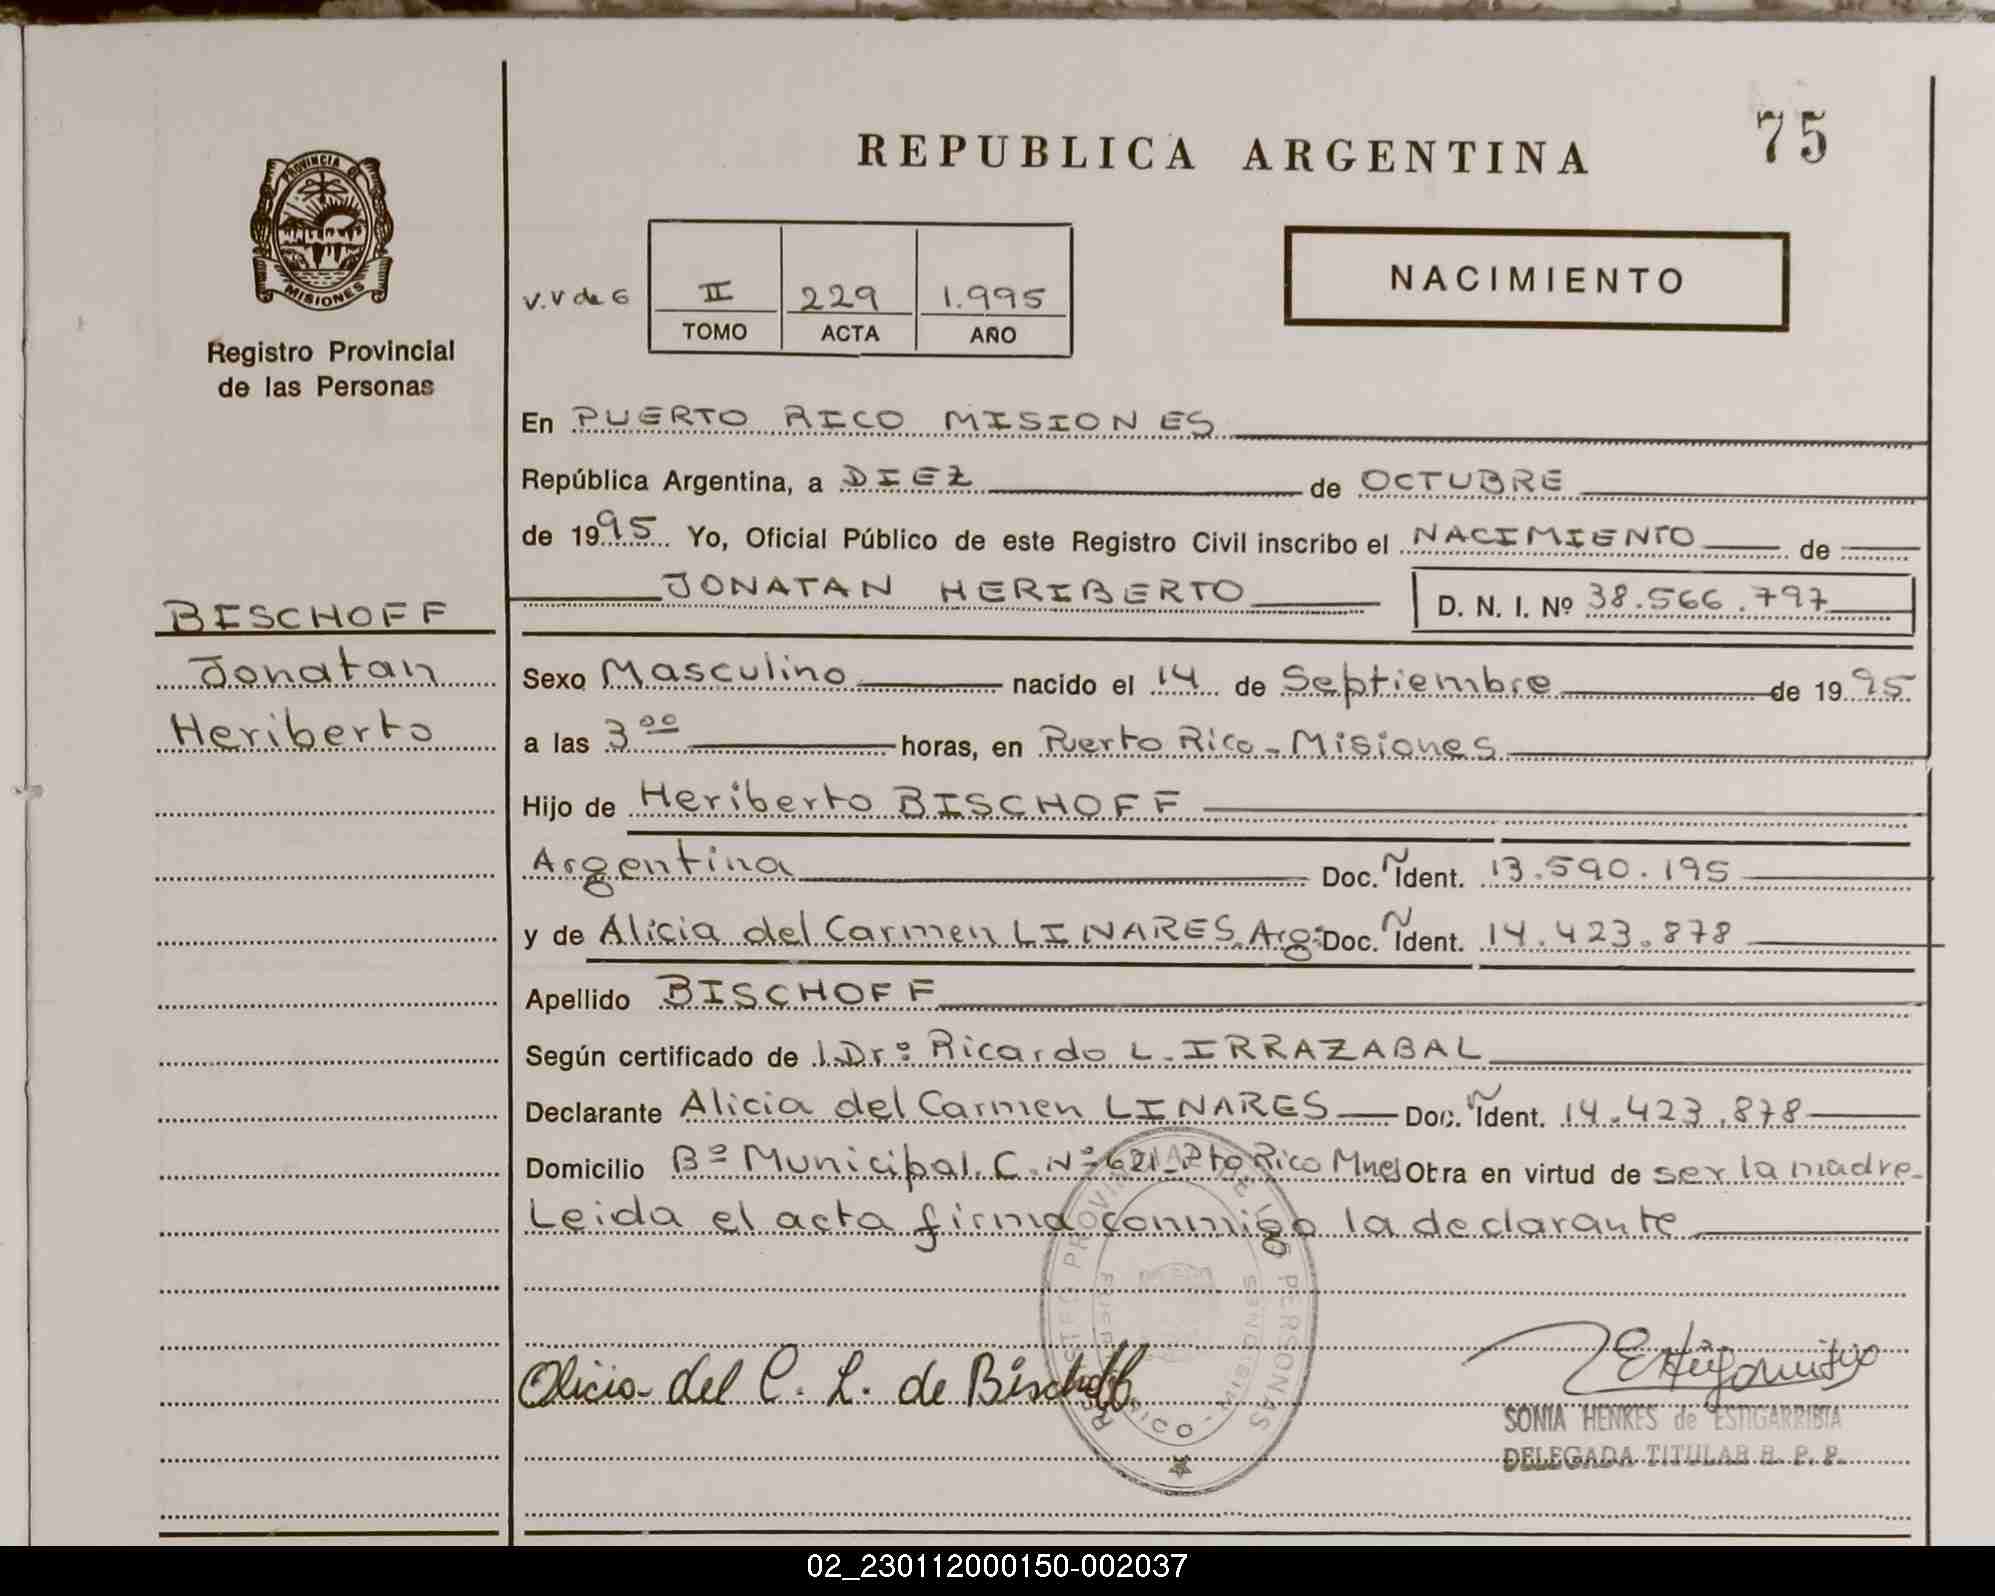 75
REPUBLICA ARGENTINA
PROVINCIA DE
MISIONES
Registro Provincial
de las Personas
NACIMIENTO
V.V de 6
II 229 1.995
TOMO ACTA AÑO
En PUERTO RICO MISIONES
República Argentina, a DIEZ de OCTUBRE
de 1995 Yo, Oficial Público de este Registro Civil inscribo el NACIMIENTO de
JONATAN HERIBERTO D. N. I. Nº 38.566.797
BISCHOFF
Jonatan
Heriberto
Sexo Masculino nacido el 14 de Septiembre de 1995
a las 3 00 horas, en Puerto Rico - Misiones
Hijo de Heriberto BISCHOFF
Argentina Doc. Ñ Ident. 13.590.195
y de Alicia del Carmen LINARES. Arg: Doc. Ñ Ident. 14.423.878
Apellido BISCHOFF
Según certificado de l.Dr: Ricardo L. IRRAZABAL
Declarante Alicia del Carmen LINARES Doc. Ñ Ident. 14.423.878
Domicilio Bº Municipal. C. Nº 621_Pto Rico Mnes Obra en virtud de ser la madre_
Leida el acta firma conmigo la declarante
REGISTRO PROVINCIAL DE LAS PERSONAS
PUERTO RICO - MISIONES
Alicia del C. L. de Bischoff
Estigarribia
SONIA HENKES de ESTIGARRIBIA
DELEGADA TITULAR R. P. P.
02_230112000150-002037